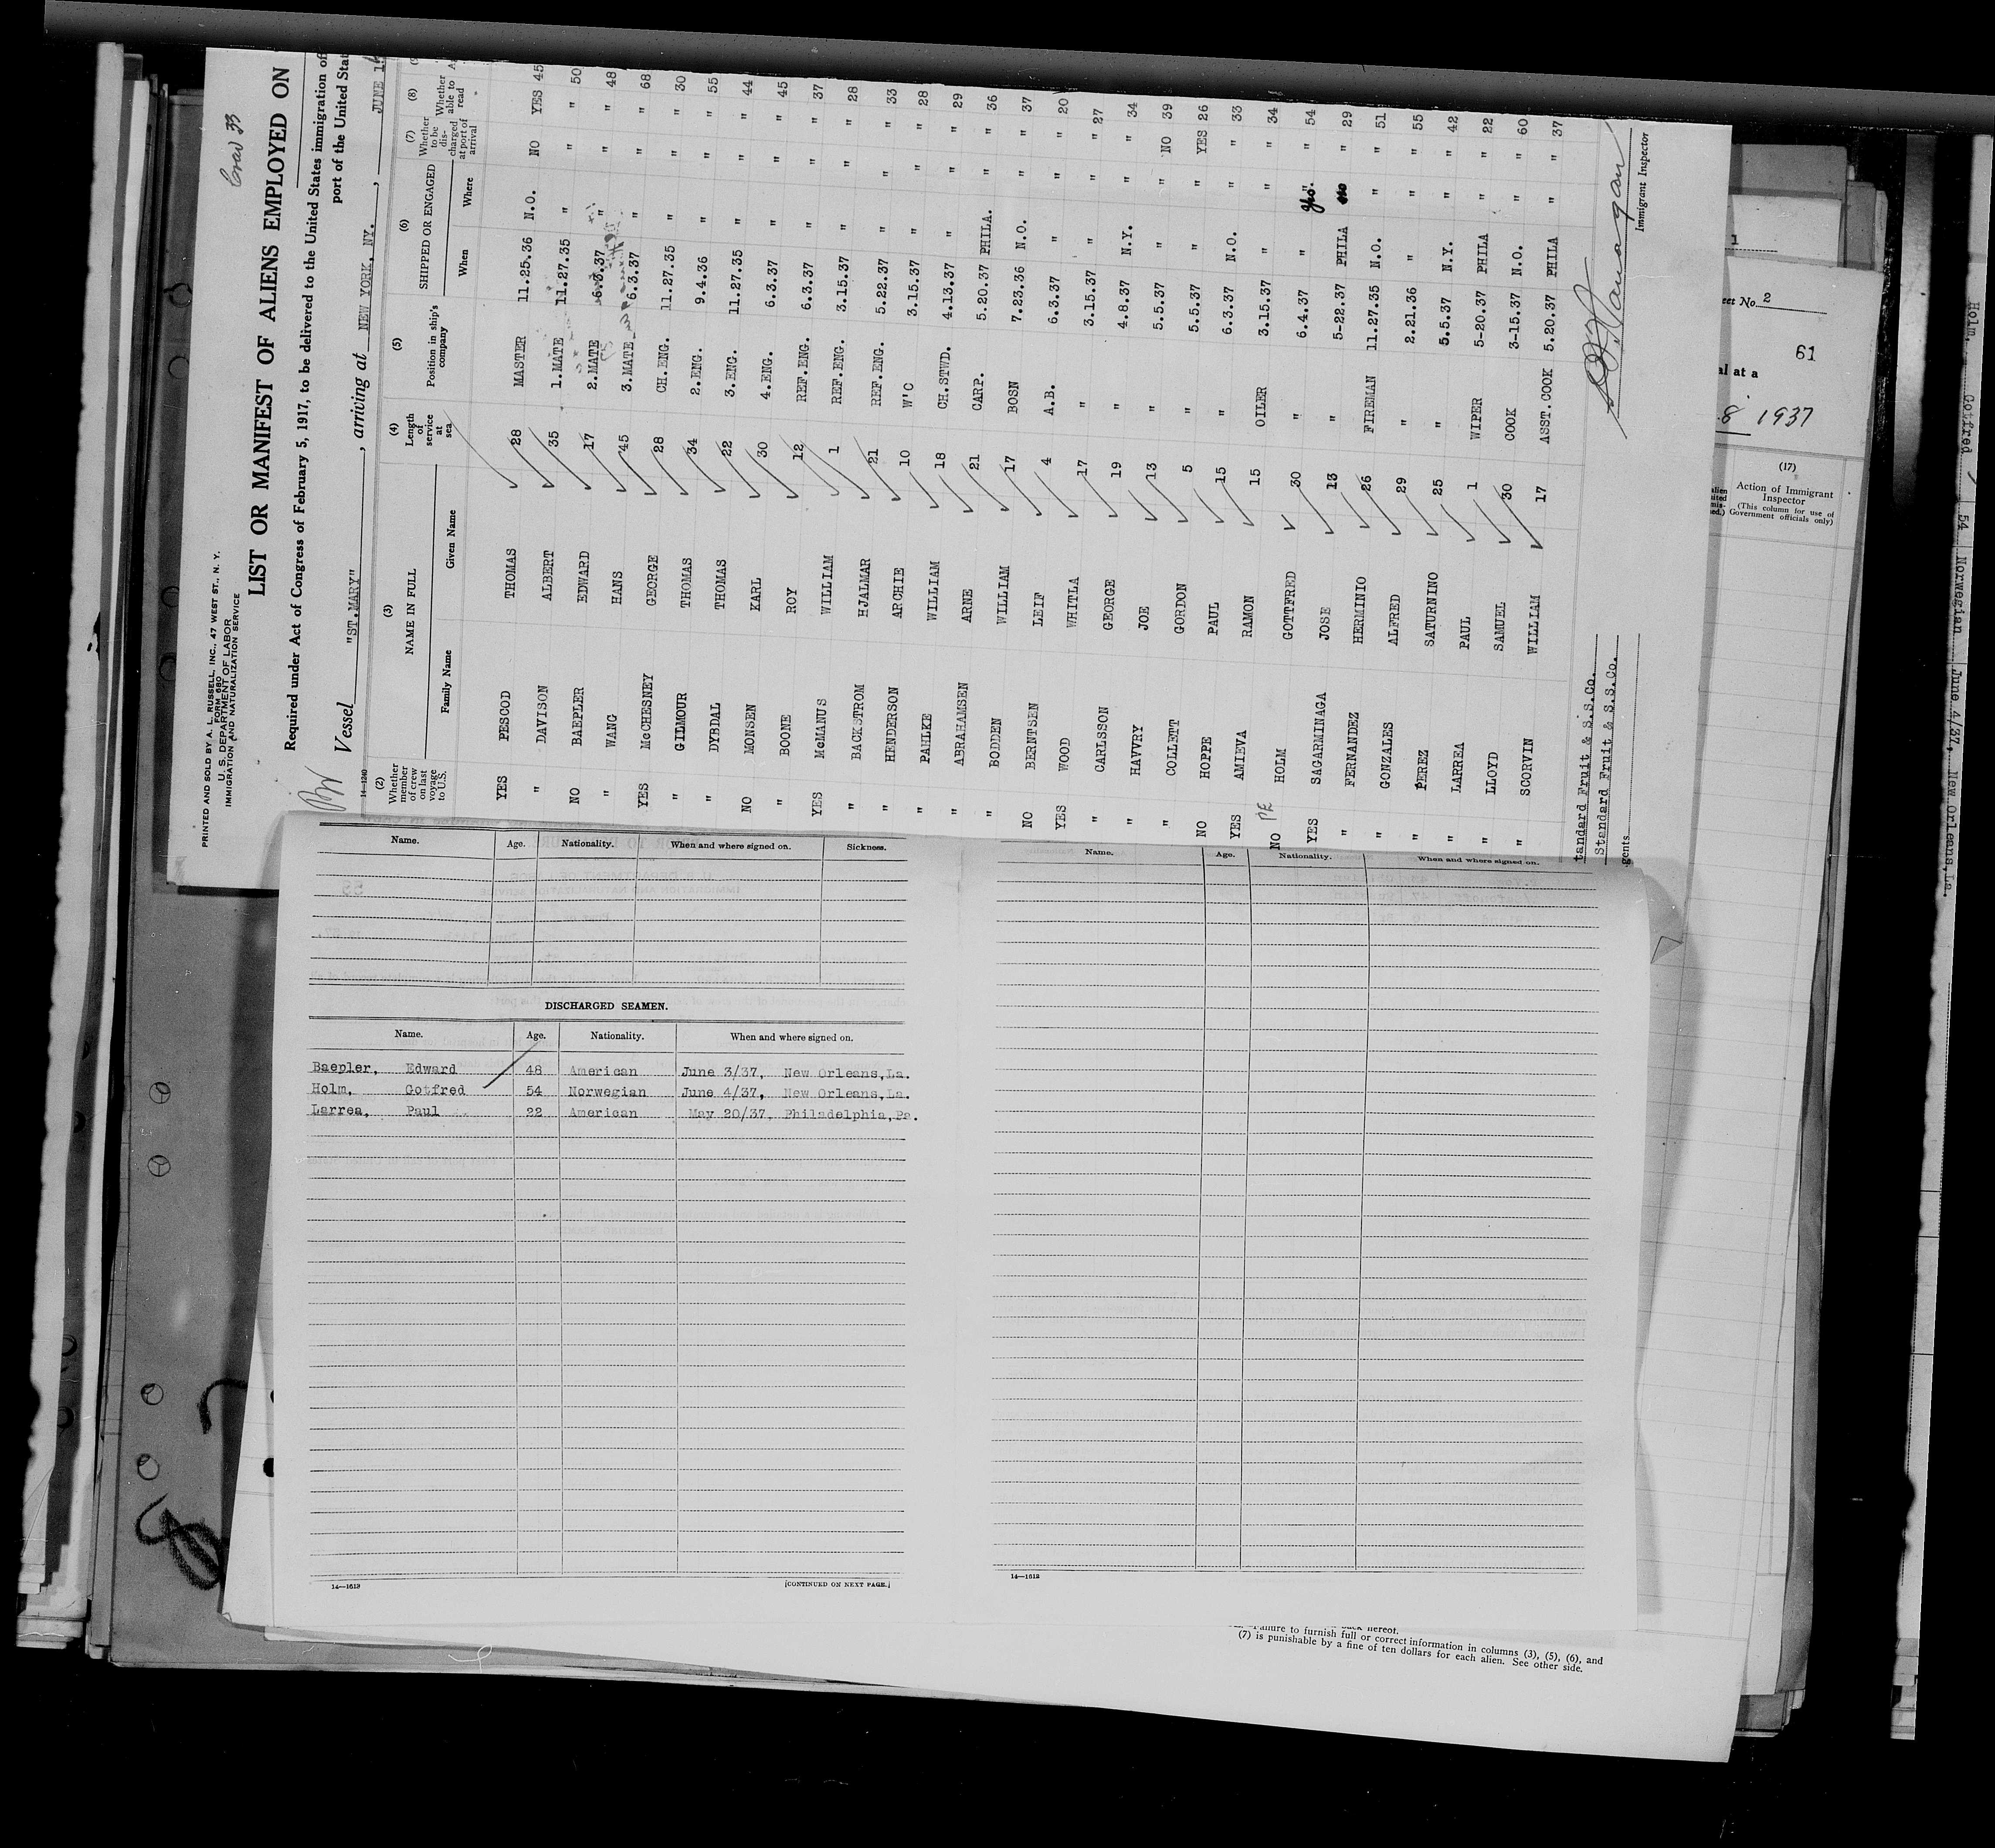 Crew 33
PRINTED AND SOLD BY A. L. RUSSELL, INC., 47 WEST ST., N. Y.
FORM 680
U. S. DEPARTMENT OF LABOR
IMMIGRATION AND NATURALIZATION SERVICE
LIST OR MANIFEST OF ALIENS EMPLOYED ON
Required under Act of Congress of February 5, 1917, to be delivered to the United States immigration of
port of the United Stat
Vessel "ST.MARY", arriving at NEW YORK, NY., JUNE 1
14-1240
(2) Whether member of crew on last voyage to U.S. (3) NAME IN FULL Family Name Given Name (4) Length of service at sea (5) Position in ship's company (6) SHIPPED OR ENGAGED When Where (7) Whether to be discharged at port of arrival (8) Whether able to read
YES PESCOD THOMAS 28 MASTER 11.25.36 N.O. NO YES 45
" DAVISON ALBERT 35 1.MATE 11.27.35 " " " 50
NO BAEPLER EDWARD 17 2.MATE 6.3.37 " " " 48
" WANG HANS 45 3.MATE 6.3.37 " " " 68
YES McCHESNEY GEORGE 28 CH.ENG. 11.27.35 " " " 30
" GILMOUR THOMAS 34 2.ENG. 9.4.36 " " " 55
" DYBDAL THOMAS 22 3.ENG. 11.27.35 " " " 44
NO MONSEN KARL 30 4.ENG. 6.3.37 " " " 45
" BOONE ROY 12 REF.ENG. 6.3.37 " " " 37
YES McMANUS WILLIAM 1 REF.ENG. 3.15.37 " " " 28
" BACKSTROM HJALMAR 21 REF.ENG. 5.22.37 " " " 33
" HENDERSON ARCHIE 10 W'O 3.15.37 " " " 28
" PAHLKE WILLIAM 18 CH.STWD. 4.13.37 " " " 29
" ABRAHAMSEN ARNE 21 CARP. 5.20.37 PHILA. " " 36
" BODDEN WILLIAM 17 BOSN 7.23.36 N.O. " " 37
NO BERNTSEN LEIF 4 A.B. 6.3.37 " " " 20
YES WOOD WHITLA 17 " 3.15.37 " " " 27
" CARLSSON GEORGE 19 " 4.8.37 N.Y. " " 34
" HAVVRY JOE 13 " 5.5.37 " " NO 39
" COLLETT GORDON 5 " 5.5.37 " " YES 26
NO HOPPE PAUL 15 " 6.3.37 N.O. " " 33
YES AMIEVA RAMON 15 OILER 3.15.37 " " " 34
NO HOLM GOTTFRED 30 " 6.4.37 " " " 54
YES SAGARMINAGA JOSE 13 " 5-22.37 PHILA no " 29
" FERNANDEZ HERMINIO 26 FIREMAN 11.27.35 N.O. " " 51
" GONZALES ALFRED 29 " 2.21.36 " " " 55
" PEREZ SATURNINO 25 " 5.5.37 N.Y. " " 42
" LARREA PAUL 1 WIPER 5-20.37 PHILA " " 22
" LLOYD SAMUEL 30 COOK 3-15.37 N.O. " " 60
" SCORVIN WILLIAM 17 ASST.COOK 5.20.37 PHILA " " 37
tandard Fruit & S.S.Co.
Standard Fruit & S.S.Co.
gents
Immigrant Inspector
1
eet No. 2
61
al at a
8 1937
(17)
Action of Immigrant Inspector
(This column for use of Government officials only)
Name. Age. Nationality. When and where signed on. Sickness.
DISCHARGED SEAMEN.
Name. Age. Nationality. When and where signed on.
Baepler, Edward 48 American June 3/37, New Orleans,La.
Holm, Gotfred 54 Norwegian June 4/37, New Orleans,La.
Larrea, Paul 22 American May 20/37, Philadelphia,Pa.
14—1613
[CONTINUED ON NEXT PAGE.]
Name. Age. Nationality. When and where signed on.
14—1613
back hereof.
failure to furnish full or correct information in columns (3), (5), (6), and
(7) is punishable by a fine of ten dollars for each alien. See other side.
Holm, Gotfred 54 Norwegian June 4/37, New Orleans,La.